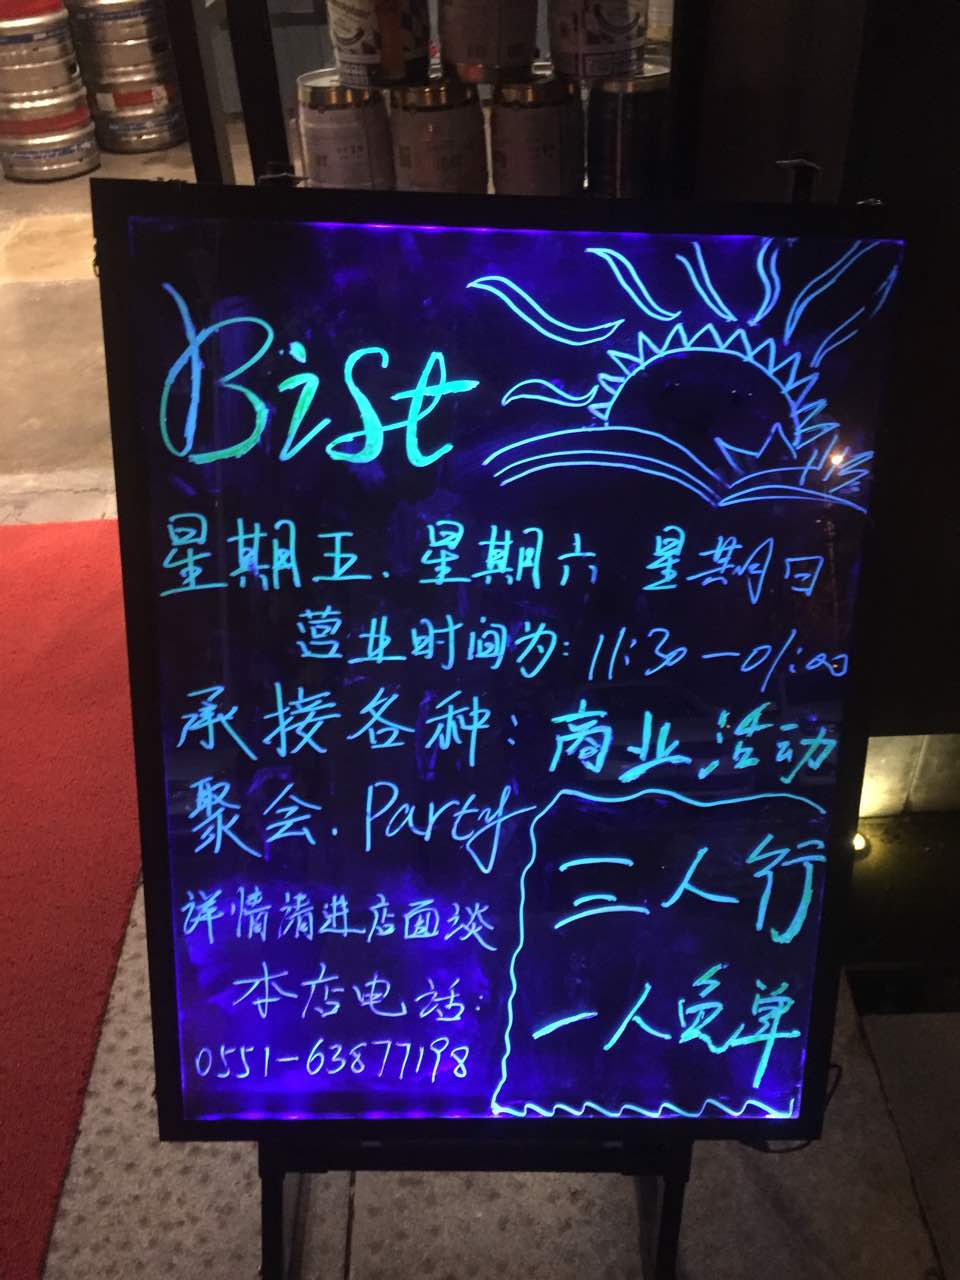 Bist
星期五.星期六 星期日
营业时间为:11:30—01:00
承接各种:商业活动
聚会.Party
详情请进店面谈
本店电话:
0551-63877198
三人行
一人免单